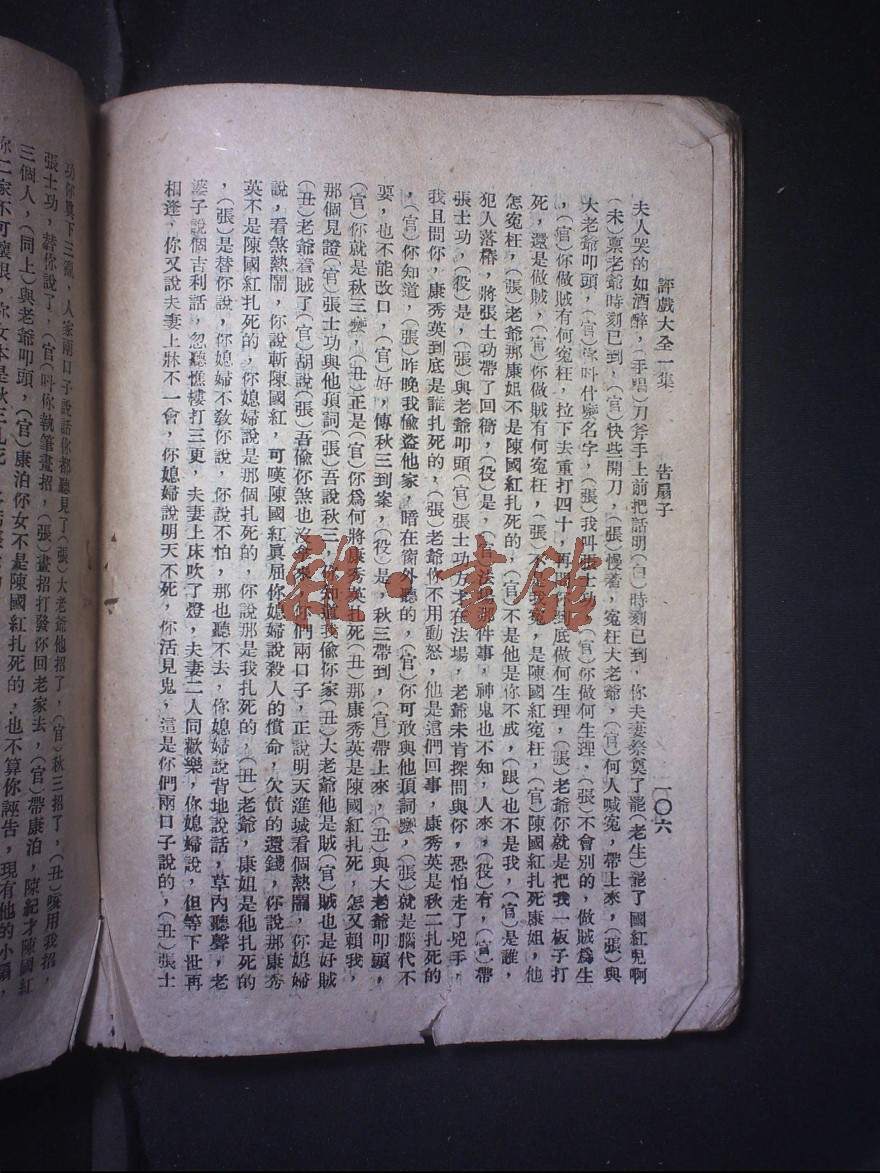 評戲大全一集 告扇子 一〇六
夫人哭的如酒醉，（手唱）刀斧手上前把話明（白）時刻已到，你夫妻祭奠了罷（老生）罷了國紅兒啊
（末）禀老爺時刻已到，（官）快些開刀，（張）慢着，寃枉大老爺，（官）何人喊寃，帶上來，（張）與
大老爺叩頭，（官）你叫什麽名字，（張）我叫張士功，（官）你做何生理，（張）不會別的，做賊爲生
，（官）你做賊有何寃枉，拉下去重打四十，再問你到底做何生理，（張）老爺你就是把我一板子打
死，還是做賊，（官）你做賊有何寃枉，（張）不是我寃，是陳國紅寃枉，（官）陳國紅扎死康姐，他
怎寃枉，（張）老爺那康姐不是陳國紅扎死的，（官）不是他是你不成，（張）也不是我，（官）是誰，
犯人落樁，將張士功帶了回衙，（役）是，（官）法場那件事，神鬼也不知，人來，（役）有，（官）帶
張士功，（役）是，（張）與老爺叩頭（官）張士功方才在法場，老爺未肯探問與你，恐怕走了兇手，
我且問你，康秀英到底是誰扎死的，（張）老爺你不用動怒，他是這們回事，康秀英是秋二扎死的
，（官）你知道，（張）昨晚我偷盜他家，暗在窗外聽的，（官）你可敢與他頂詞麽，（張）就是腦代不
要，也不能改口，（官）好，傳秋三到案，（役）是，秋三帶到，（官）帶上來，（丑）與大老爺叩頭，
（官）你就是秋三麽，（丑）正是（官）你爲何將康秀英扎死（丑）那康秀英是陳國紅扎死，怎又賴我，
那個見證（官）張士功與他頂詞（張）吾說秋三，你知道我偷你家（丑）大老爺他是賊（官）賊也是好賊
（丑）老爺着賊了（官）胡說（張）吾偷你煞也沒拿來，你們兩口子，正說明天進城看個熱鬧，你媳婦
說，看煞熱鬧，你說斬陳國紅，可嘆陳國紅眞屈你媳婦說殺人的償命，欠債的還錢，你說那康秀
英不是陳國紅扎死的，你媳婦說是那個扎死的，你說那是我扎死的，（丑）老爺，康姐是他扎死的
，（張）是替你說，你媳婦不敎你說，你說不怕，那也聽不去，你媳婦說背地說話，草內聽聲，老
婆子說個吉利話，忽聽樵樓打三更，夫妻上床吹了燈，夫妻二人同歡樂，你媳婦說，但等下世再
相逢，你又說夫妻上牀不一會，你媳婦說明天不死，你活見鬼，這是你們兩口子說的，（丑）張士
功你眞下三濫，人家兩口子說話你都聽見了（張）大老爺他招了，（官）秋三招了，（丑）嗳用我招，
張士功，替你說了，（官）叫你執筆畫招，（張）畫招打發你回老家去，（官）帶康泊，陳紀才陳國紅
三個人，（同上）與老爺叩頭，（官）康泊你女不是陳國紅扎死的，也不算你誣告，現有他的小扇，
你二家不可懷恨，你女本是秋三扎死
雜·書館